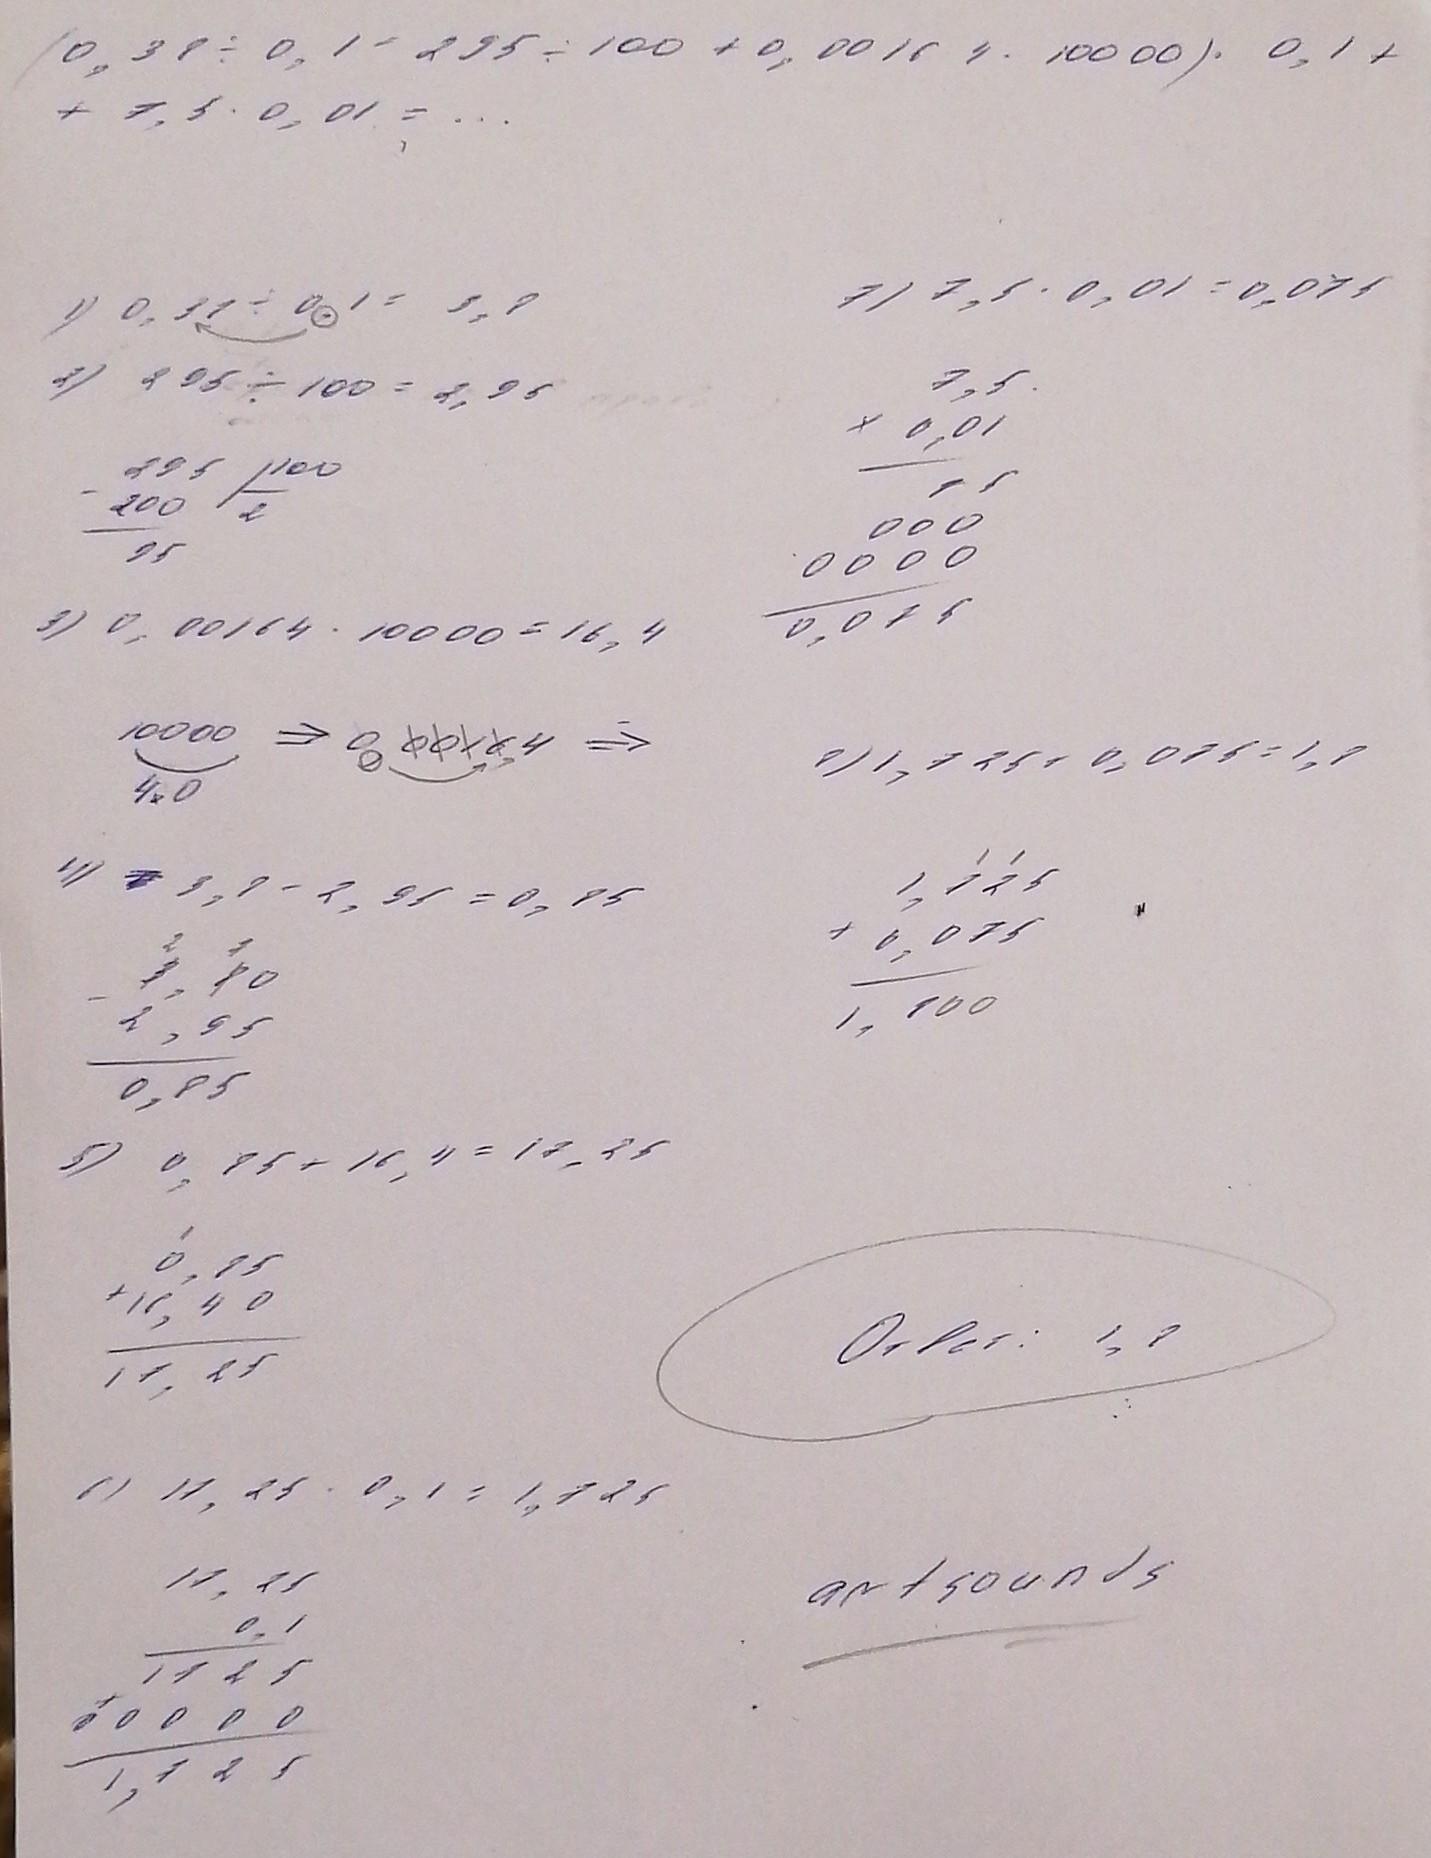 (0,38 ÷ 0,1 - 295 ÷ 100 + 0,00164 · 10000) · 0,1 +
+ 7,5 · 0,01 = ...
1) 0,38 ÷ 0,1 = 3,8
2) 295 ÷ 100 = 2,95
295 100
- 200 2
95
3) 0,00164 · 10000 = 16,4
10000 ⇒ 0,0016,4 ⇒
4x0
4) 3,8 - 2,95 = 0,85
2 7
3,80
- 2,95
0,85
5) 0,85 + 16,4 = 17,25
1
0,85
+ 16,40
17,25
6) 17,25 · 0,1 = 1,725
17,25
0,1
1725
+ 0000
1,725
7) 7,5 · 0,01 = 0,075
7,5
x 0,01
75
000
0000
0,075
8) 1,725 + 0,075 = 1,8
1 1
1,725
+ 0,075
1,800
Ответ: 1,8
artsounds